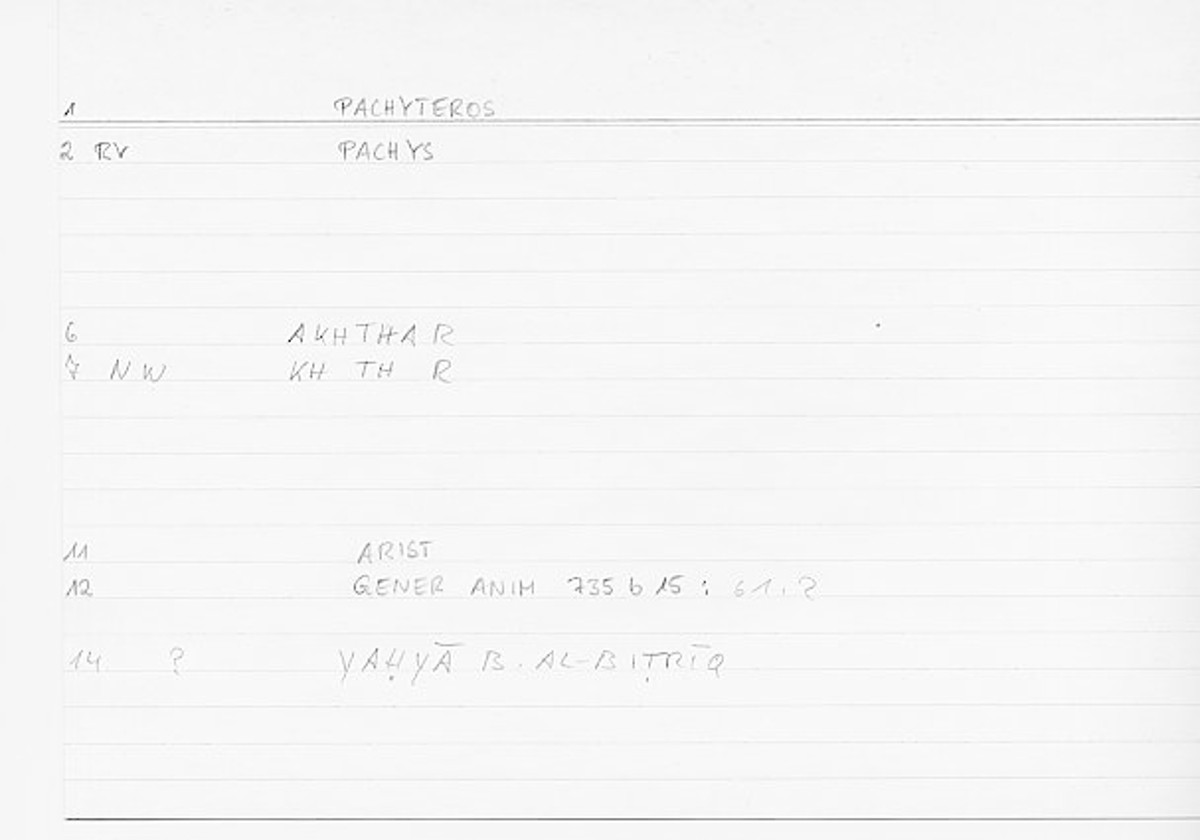 1 PACHYTEROS
2 RV PACHYS
6 AKHTHA R
7 NW KH TH R
11 ARIST
12 GENER ANIM 735 b 15 : 61.2
14 ? YAḤYĀ B. AL-BIṬRĪQ